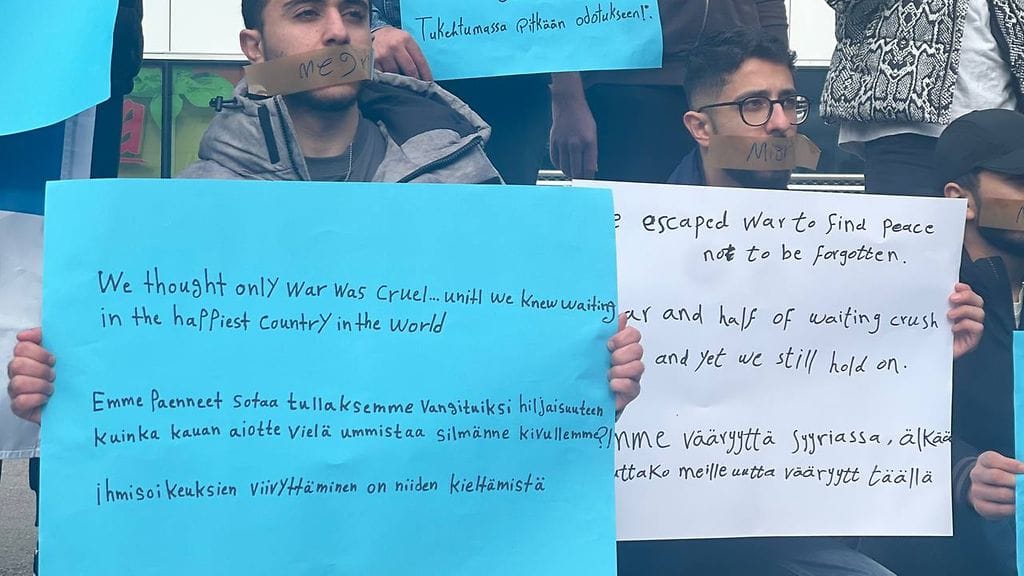 Tukehtumassa pitkään odotukseen!.
Migri
We thought only war was cruel... unitl we knew waiting
in the happiest country in the world
Emme Paenneet sotaa tullaksemme vangituiksi hiljaisuuteen
kuinka kauan aiotte vielä ummistaa silmänne kivullemme?!
ihmisoikeuksien viivyttäminen on niiden kieltämistä
escaped war to find peace
not to be forgotten.
and half of waiting crush
and yet we still hold on.
vääryyttä syyriassa, älkää
meille uutta vääryytt täällä